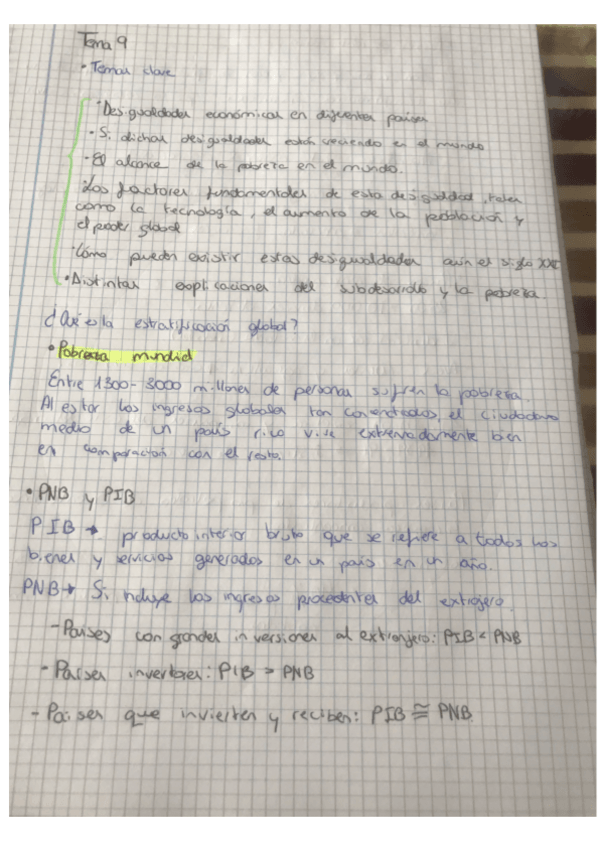 Tema 9
• Temas clave
• Desigualdades económicas en diferentes países
• Si dichas desigualdades están creciendo en el mundo
• El alcance de la pobreza en el mundo.
• Los factores fundamentales de esta desigualdad, tales
como la tecnología, el aumento de la población y
el poder global
• Cómo pueden existir estas desigualdades aún el siglo XXI
• Distintas explicaciones del subdesarrollo y la pobreza.
¿Qué es la estratificación global?
• Pobreza mundial
Entre 1300-3000 millones de personas sufren la pobreza.
Al estar los ingresos globales tan concentrados, el ciudadano
medio de un país rico vive extremadamente bien
en comparación con el resto.
• PNB y PIB
PIB → producto interior bruto que se refiere a todos los
bienes y servicios generados en un país en un año.
PNB → Si incluye los ingresos procedentes del extranjero.
- Países con grandes inversiones al extranjero: PIB < PNB
- Países invertores: PIB > PNB
- Países que invierten y reciben: PIB ≅ PNB